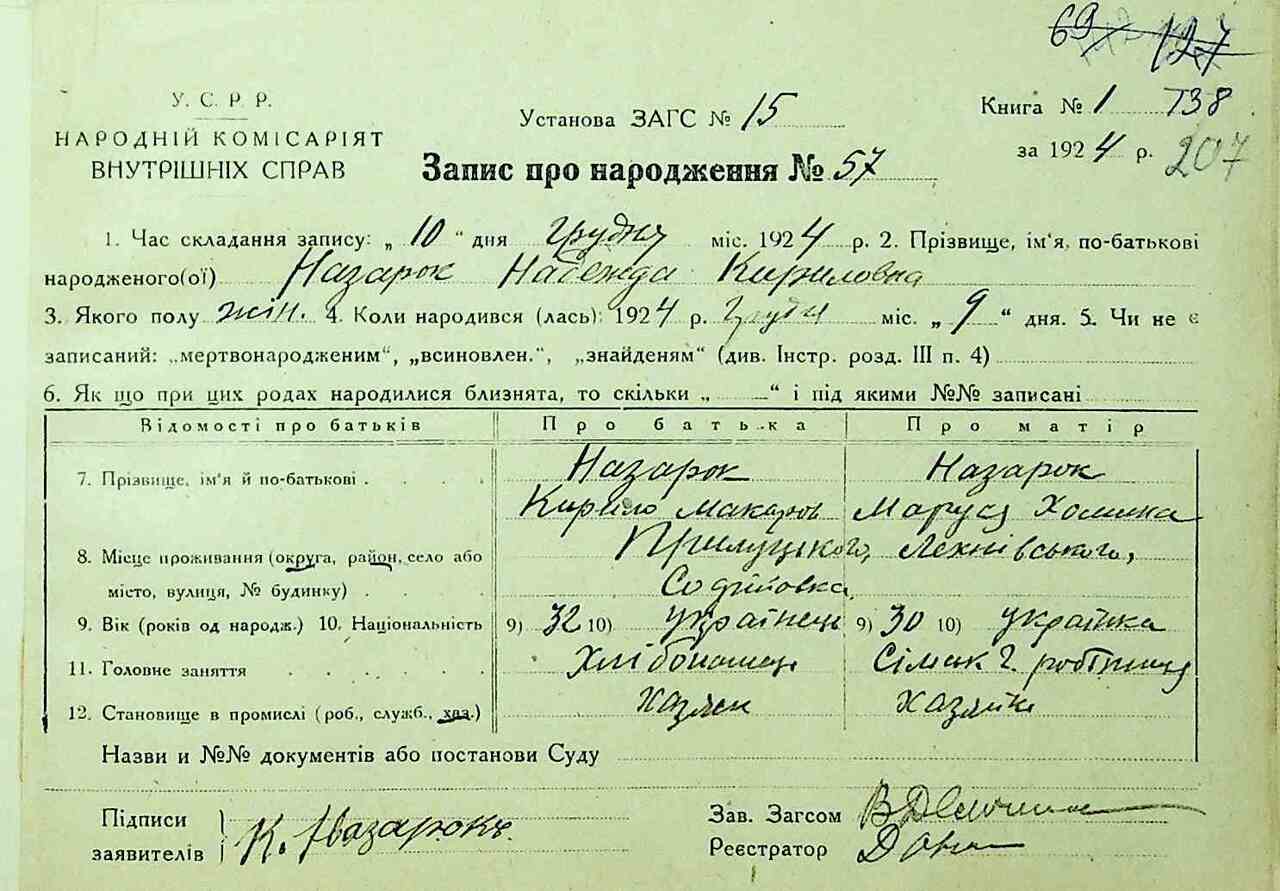 69 127
У. С. Р. Р.
НАРОДНІЙ КОМІСАРІЯТ
ВНУТРІШНІХ СПРАВ
Установа ЗАГС № 15
Книга № 1 138
за 1924 р. 207
Запис про народження № 57
1. Час складання запису: „ 10 “ дня грудня міс. 1924 р. 2. Прізвище, ім'я, по-батькові
народженого(ої) Назарок Надежда Кириловна
3. Якого полу жін. 4. Коли народився (лась): 1924 р. грудн міс. „ 9 “ дня. 5. Чи не є
записаний: „мертвонародженим“, „всиновлен.“, „знайденям“ (див. Інстр. розд. III п. 4)
6. Як що при цих родах народилися близнята, то скільки „ “ і під якими №№ записані
Відомості про батьків Про батька Про матір
7. Прізвище, ім'я й по-батькові Назарок Назарок
Кирило Макаров Маруся Хомина
8. Місце проживання (округа, район, село або Прилуцького, Лехнівського,
місто, вулиця, № будинку) Софіїовка
9. Вік (років од народж.) 10. Національність 9) 32 10) українець 9) 30 10) українка
11. Головне заняття Хлібопашец робтниця
12. Становище в промислі (роб., служб., хаз.) Хазяин Хазяйка
Назви и №№ документів або постанови Суду
Підписи
заявителів К. Назарокъ
Зав. Загсом
Реєстратор